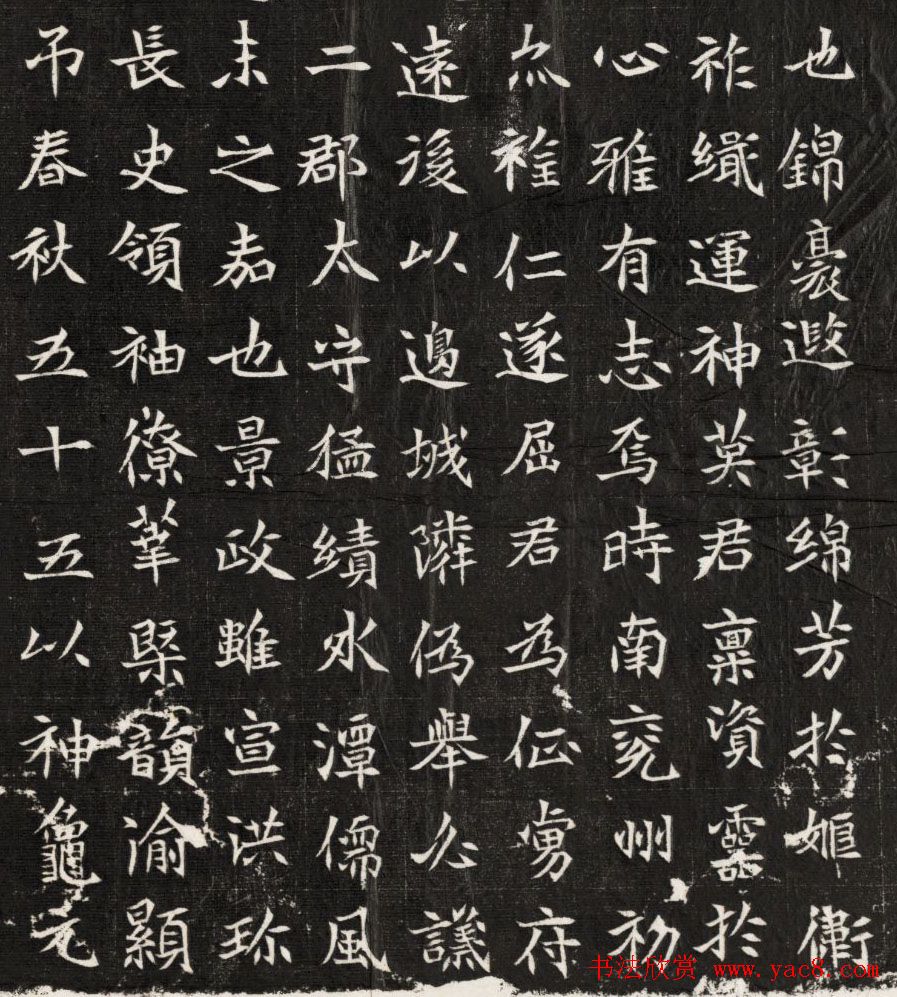 也錦遐彰綿芳於姬衛
祚織運神英君稟資靈於
心雅有志焉時南兗州初
仁遂屈君為征虜府
遠後以邊城隣偽舉必
二郡太守猛績水潭儒風
末之嘉也景政雖宣洪珎
長史領袖僚華槩韻渝顯
春秋五十五以神龜元
书法欣赏 www.yac8.com